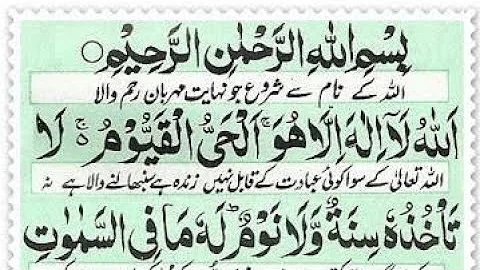 بِسْمِ اللّٰهِ الرَّحْمٰنِ الرَّحِیْمِ ○
اللہ کے نام سے شروع جو نہایت مہربان رحم والا
اَللّٰهُ لَاۤ اِلٰهَ اِلَّا هُوَۚ اَلْحَیُّ الْقَیُّوْمُ ۚ لَا
اللہ تعالیٰ کے سوا کوئی عبادت کے قابل نہیں زندہ ہے سنبھالنے والا ہے نہ
تَاْخُذُهٗ سِنَةٌ وَّلَا نَوْمٌؕ لَهٗ مَا فِی السَّمٰوٰتِ